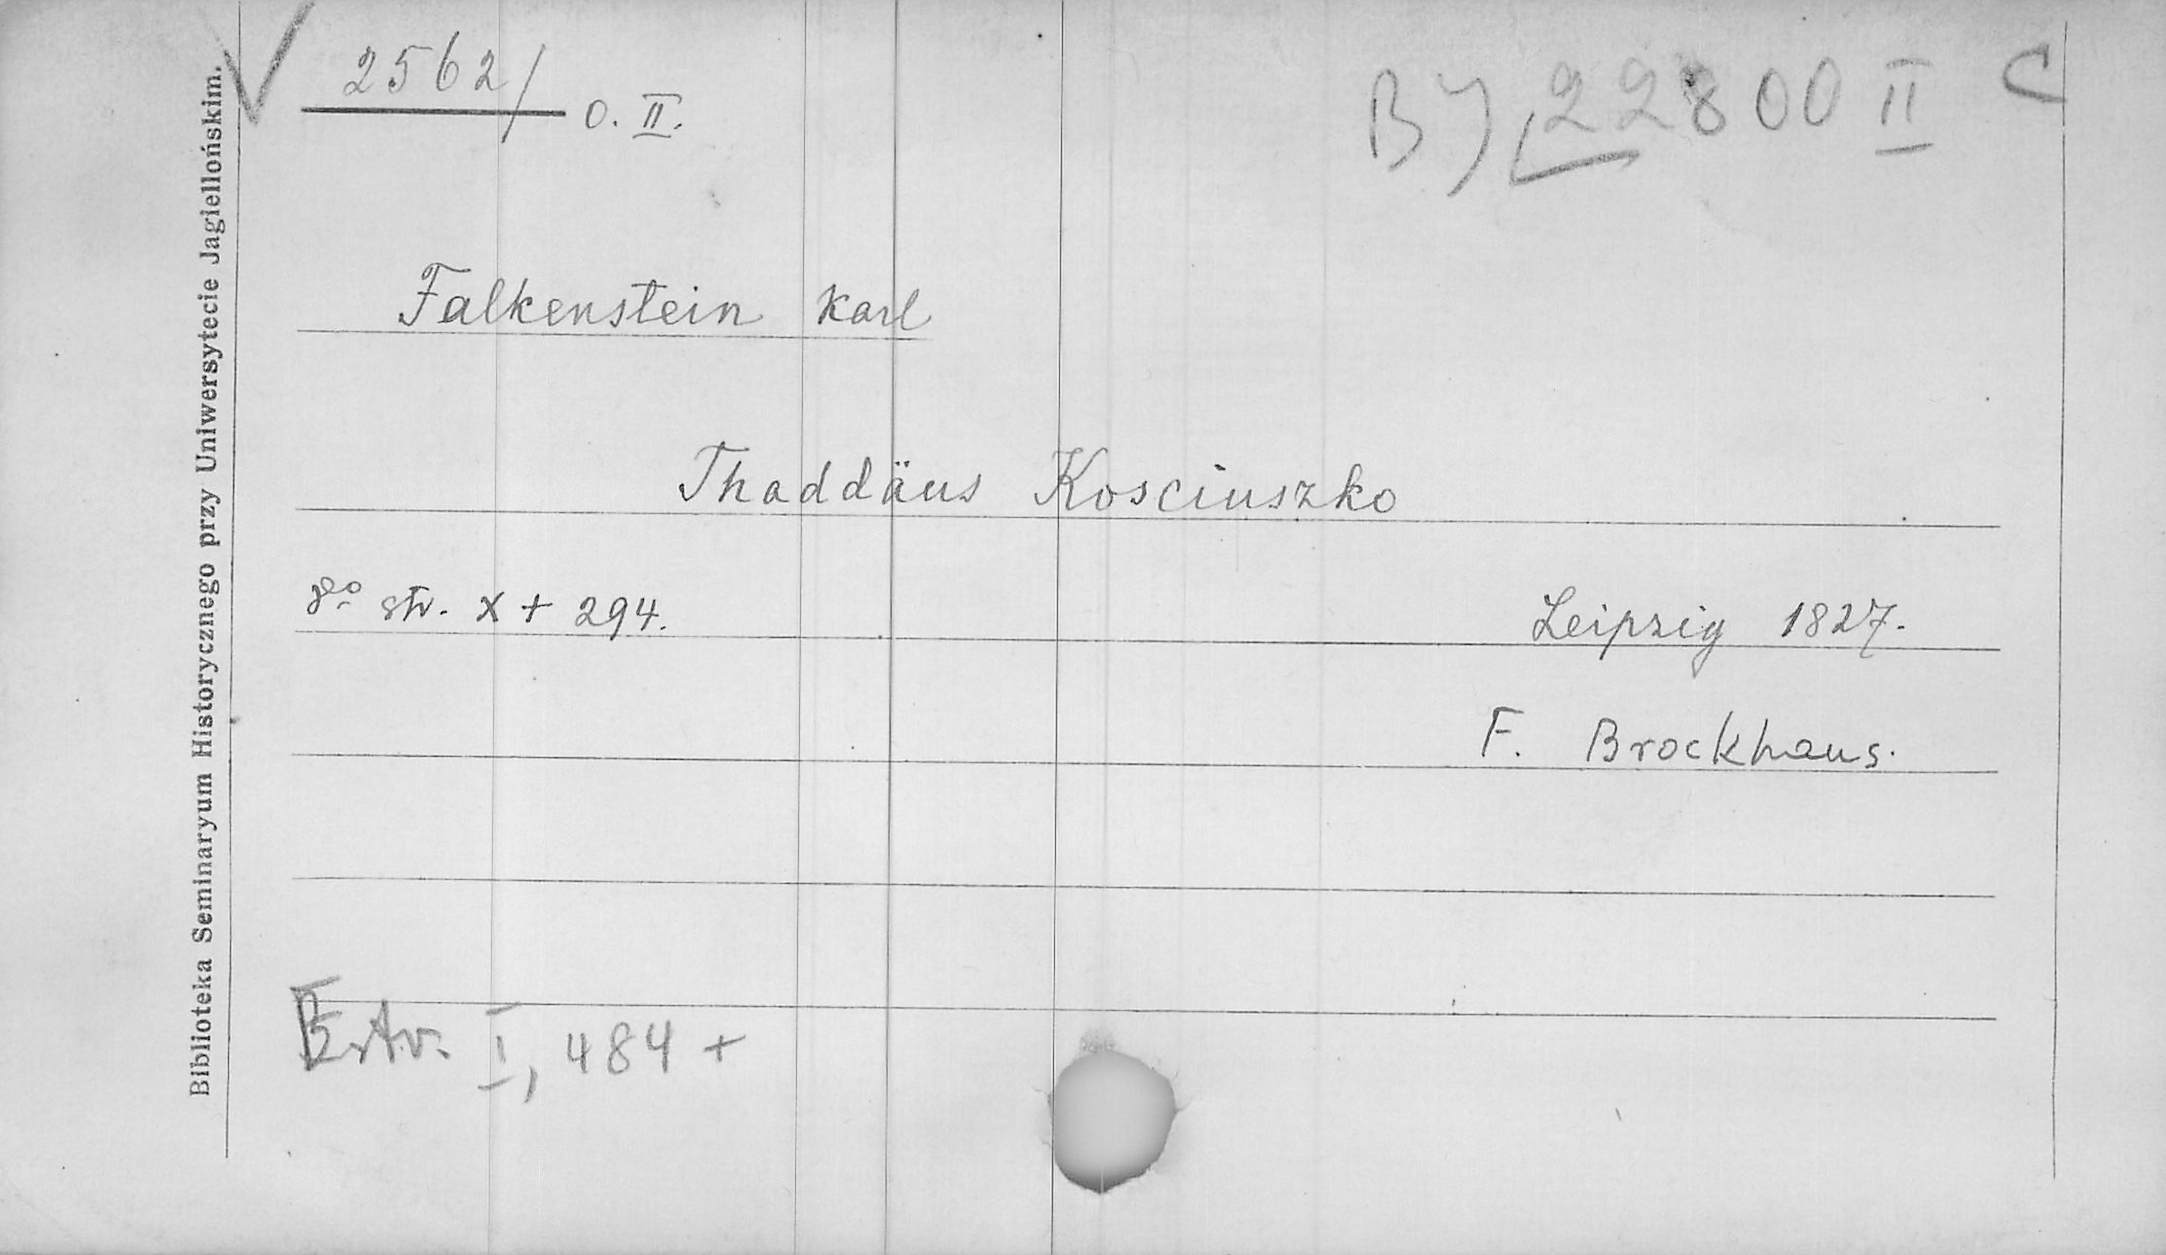 2562/ O. II.
BJ 22800 II C
Falkenstein Karl
Thaddäus Kosciuszko
8o str. X + 294.
Leipzig 1827.
F. Brockhaus.
Estr. I, 484 +
Biblioteka Seminaryum Historycznego przy Uniwersytecie Jagiellońskim.